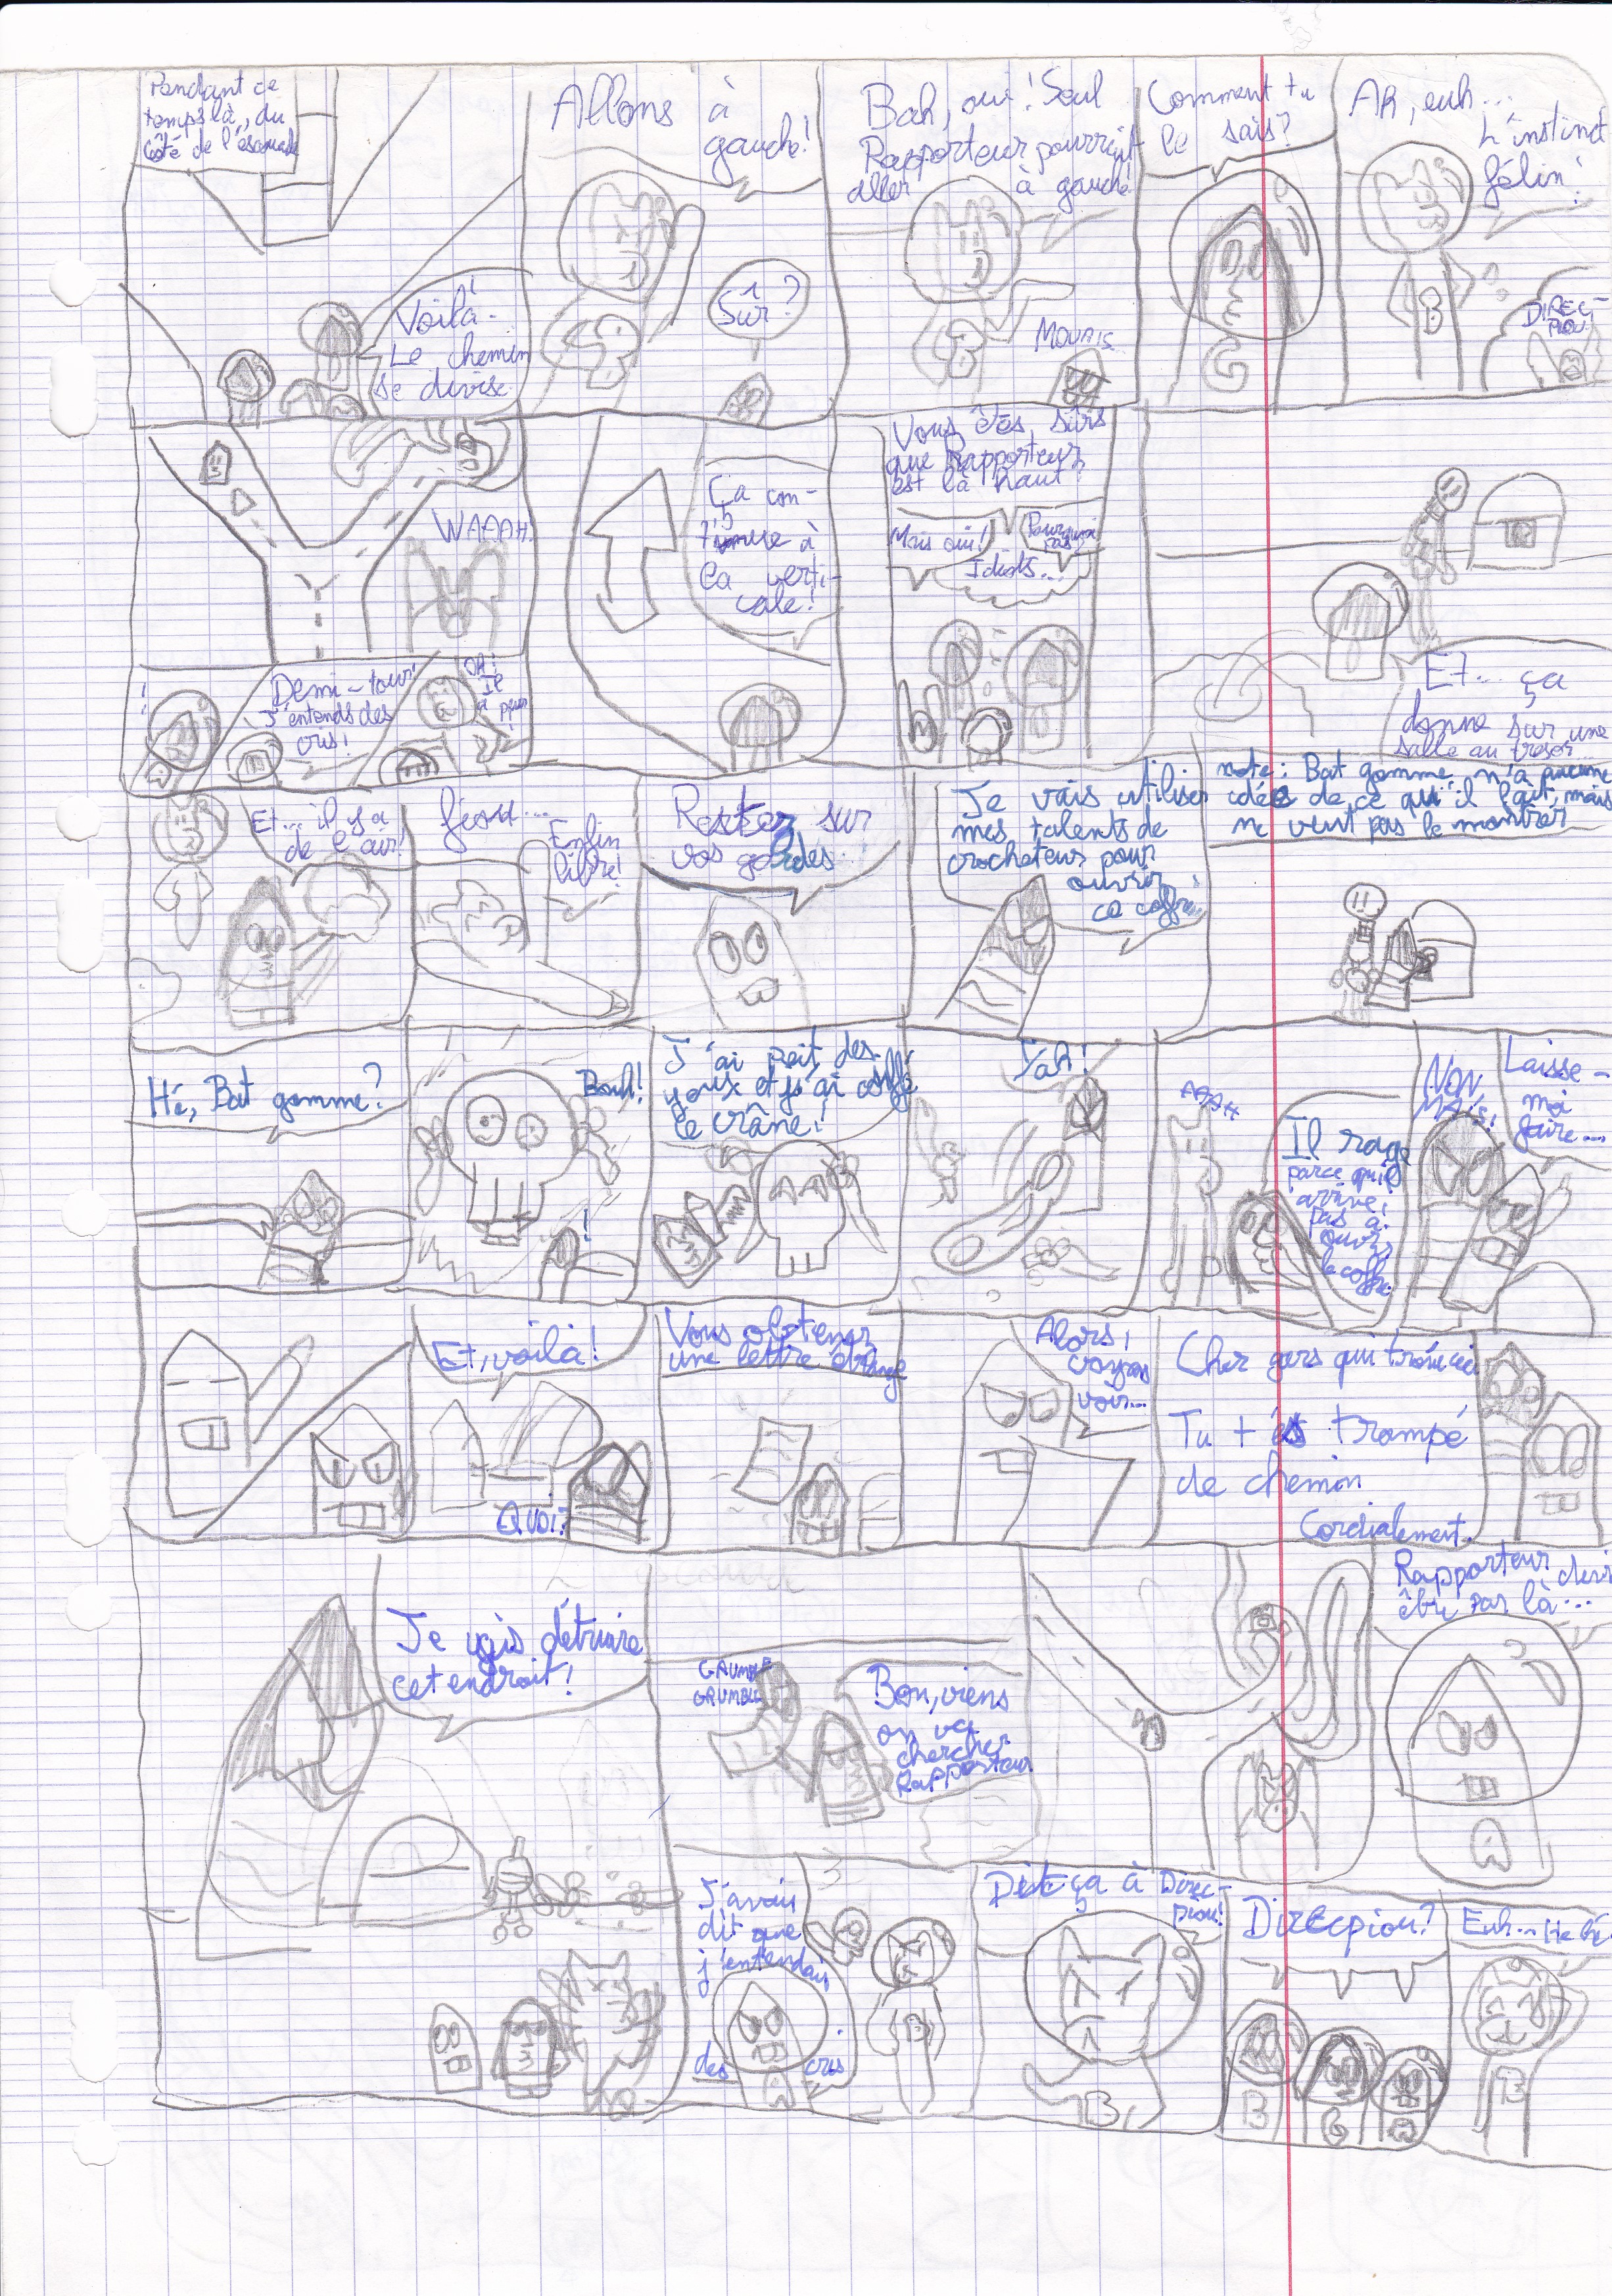 Pendant ce
temps là, du
côté de l'escouade
Voilà.
Le chemin
se divise.
Allons à
gauche!
Sûr?
Bah, oui! Seul
Rapporteur pourrait
aller à gauche!
MOUAIS...
Comment tu
le sais?
Ah, euh...
L'instinct
félin!
DIREC-
PION
WAAAH!
!
Demi-tour!
J'entends des
cris!
OH!
Ça con-
tinue à
la verti-
cale!
Vous êtes sûrs
que Rapporteur
est là haut?
Mais oui!
Pourquoi
pas?
Idiots...
Et... ça
donne sur une
salle au trésor
Et... il y a
de l'air!
Enfin
libre!
Restez sur
vos gardes
Je vais utiliser
mes talents de
crocheteur pour
ouvrir
ce coffre
note: Bat gomme n'a aucune
idée de ce qu'il fait, mais
ne veut pas le montrer
Hé, Bat gomme?
Bouh!
!
J'ai peit des
yeux et j'ai coiffé
le crâne!
Yah!
AAAH
Il rage
parce qu'il
arrive
pas à
ouvrir
le coffre.
NON
MAIS!
Laisse-
moi
faire...
Et, voilà!
QUOI?
Vous obtenez
une lettre étrange
Alors,
voyons
voir...
Cher gars qui
Tu t'es trompé
de chemin
Cordialement.
Je vais détruire
cet endroit!
GRUMBLE
GRUMBLE
Bon, viens
on va
chercher
Rapporteur
Rapporteur
être par là...
J'avais
dit que
j'entendais
des cris
Dit ça à Direc-
pion!
Direcpion?
Euh... Hé hé